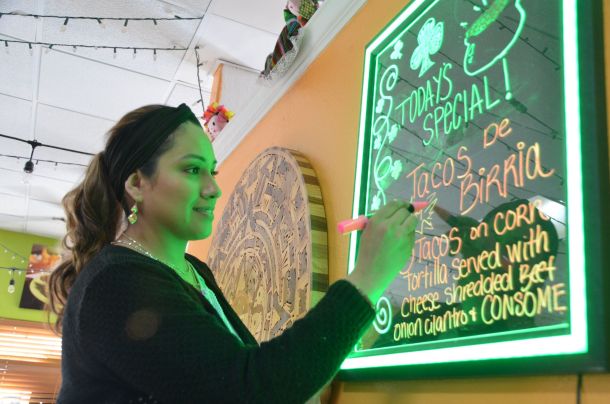 TODAY'S
SPECIAL!
TACOS DE
BIRRIA
TACOS on CORN
TorTilla SERVED WITH
CHEESE SHREDDED BEEF
ONION CILANTRO & CONSOME